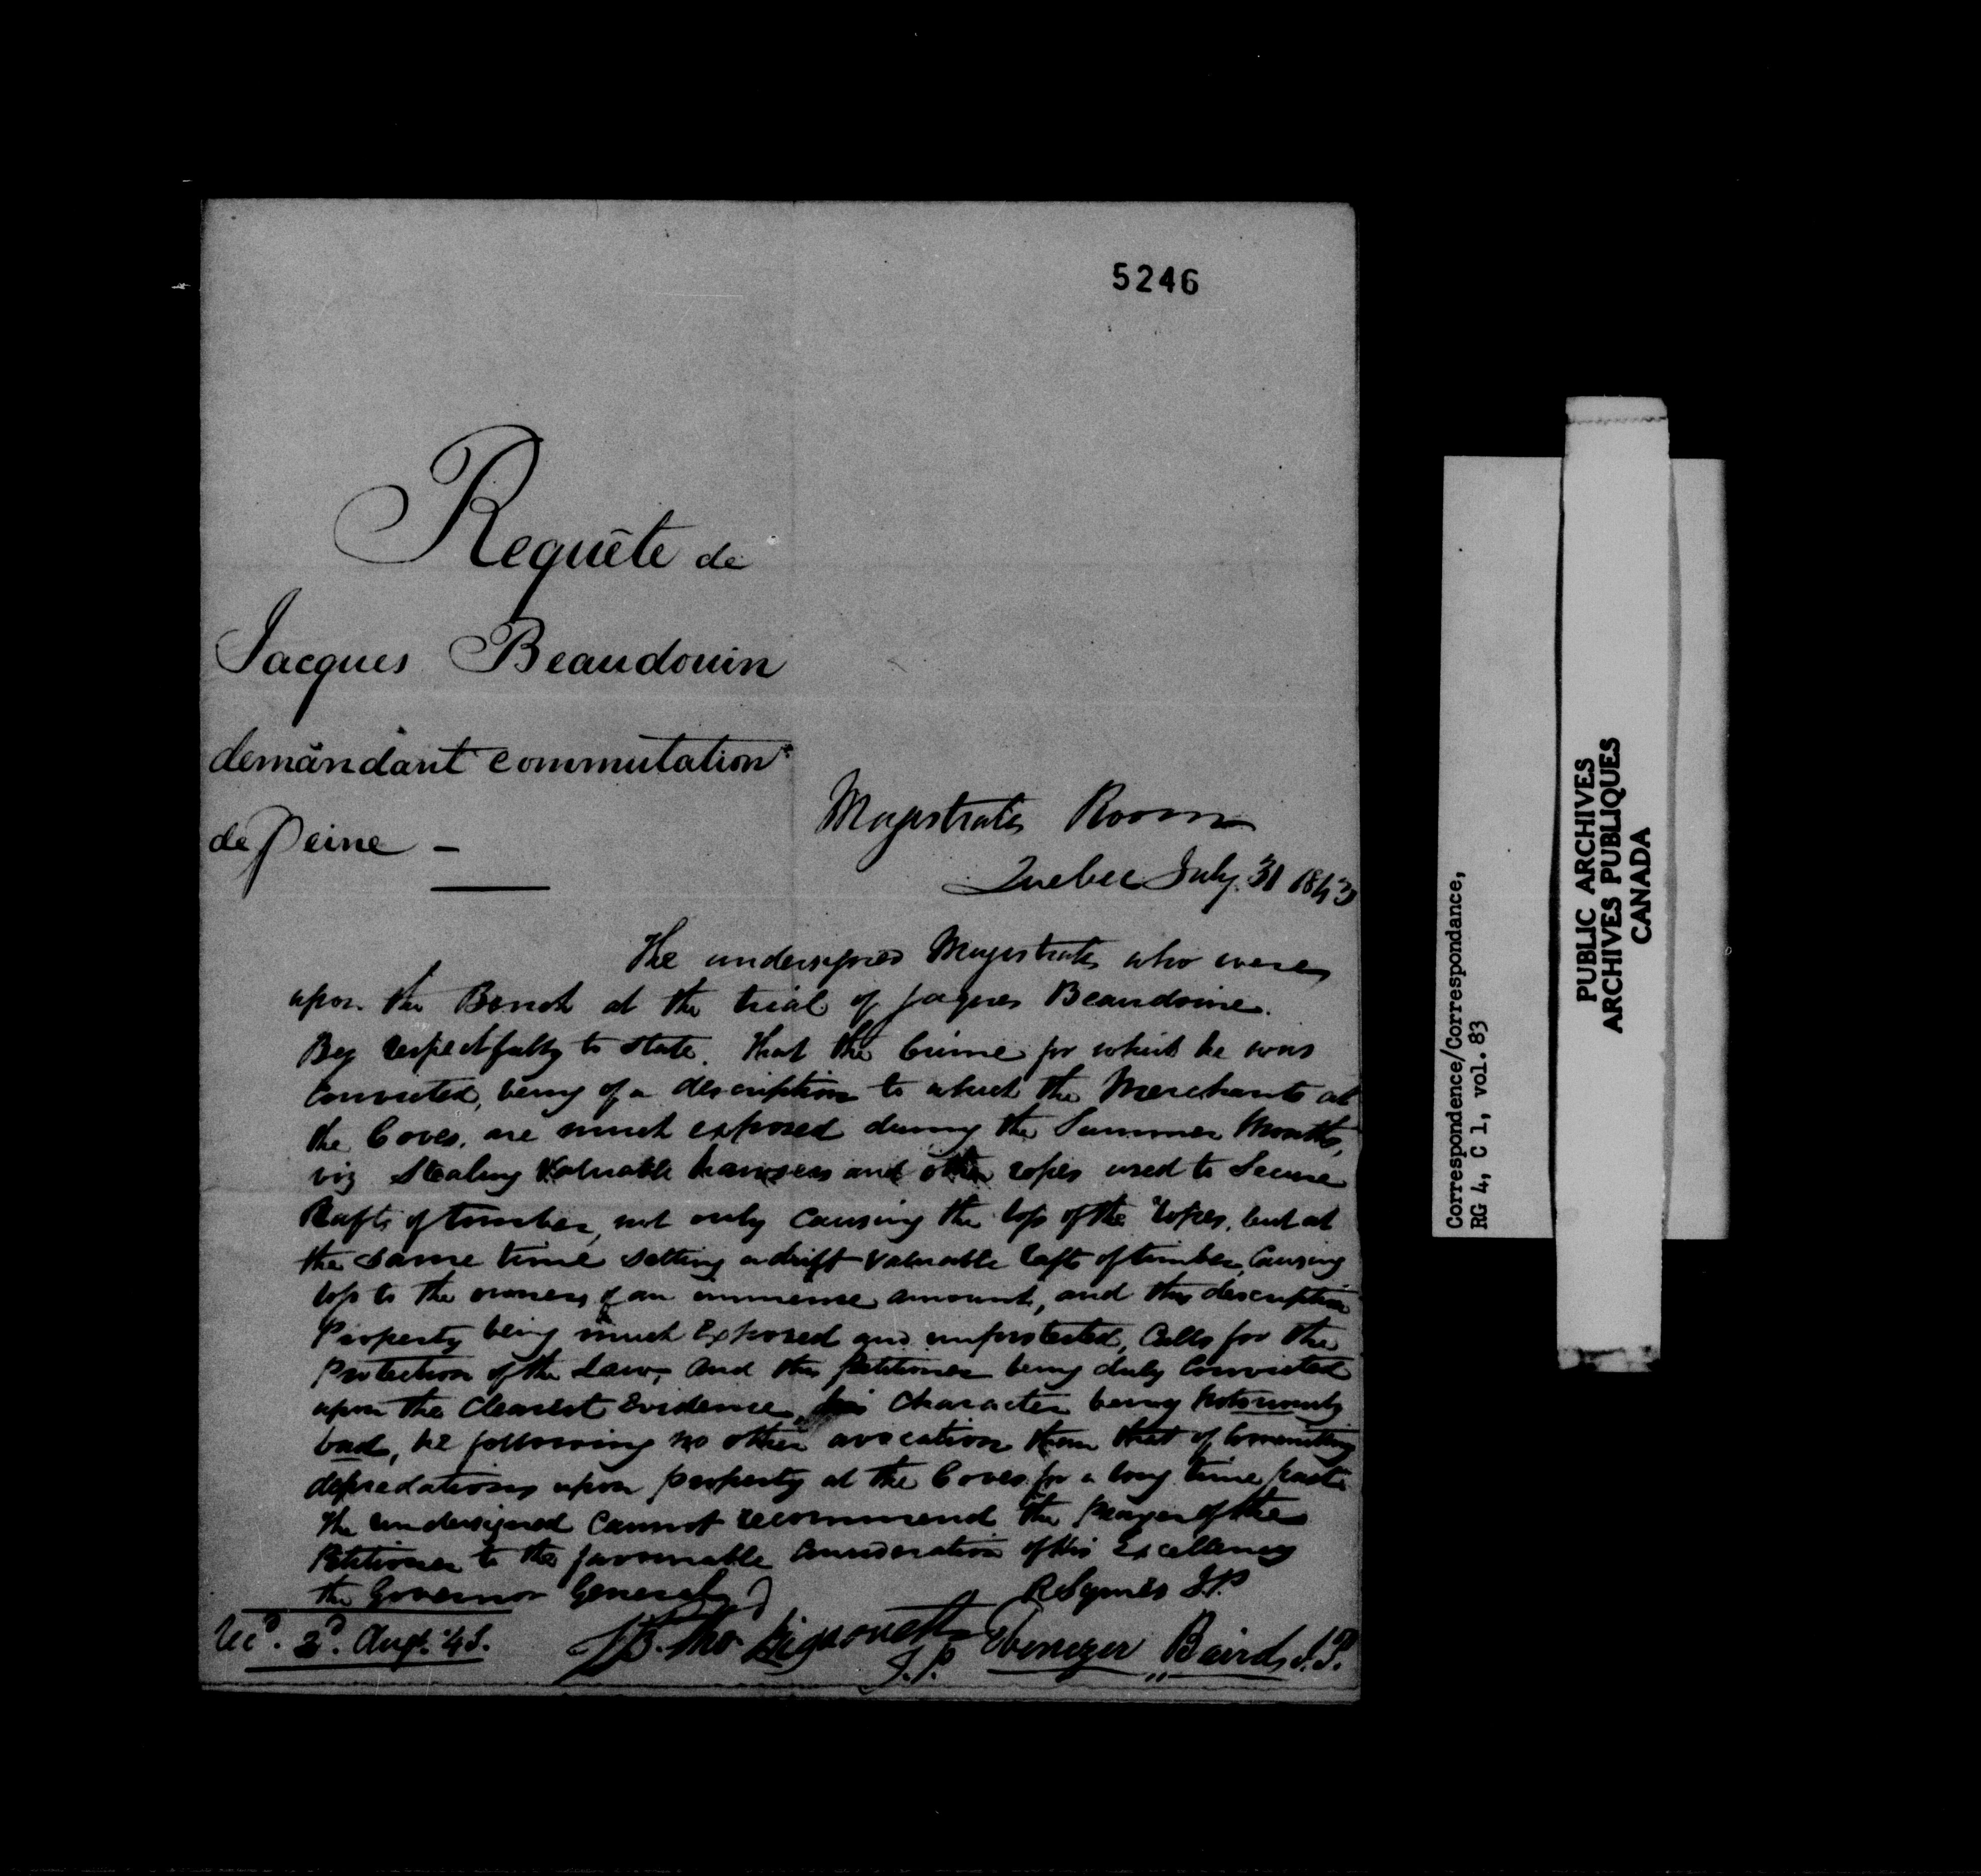 5246
Requête de
Jacques Beaudouin
demandant commutation
de Peine –
Magistrates Room
Quebec July 31 1843
The undersigned Magistrates who were
upon the Bench at the trial of Jaques Beaudoine.
Beg respectfully to state. That the Crime for which he was
Convicted, being of a description to which the Merchants at
the Coves. are much exposed during the Summer Months,
viz Stealing Valuable hawsers and other ropes used to Secure
Rafts of timber, not only Causing the loss of the ropes, but at
the same time setting adrift Valuable rafts of timber, Causing
loss to the owners of an immense amount, and this description
Property being much Exposed and unprotected, Calls for the
Protection of the Law, and the Petitioner being duly Convicted
upon the Clearest Evidence, his Character being Notoriously
bad, he following no other avocation than that of Committing
depredations upon property at the Coves for a long time past.
The undersigned Cannot recommend the prayer of the
Petitioner to the favourable Consideration of His Excellency
the Governor General
R Symes J.P
Rec^d. 2^d. Aug^t. 43.
J.P.
Ebenezer Baird, J.P.
Correspondence/Correspondance,
RG 4, C 1, vol. 83
PUBLIC ARCHIVES
ARCHIVES PUBLIQUES
CANADA